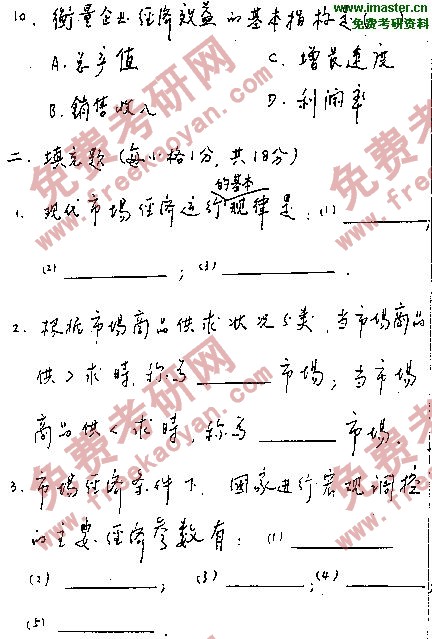 www.imaster.cn
免费考研资料
10. 衡量企业经济效益的基本指标是(
A. 总产值 C. 增长速度
B. 销售收入 D. 利润率
二. 填充题 (每小格1分, 共18分)
的基本
1. 现代市场经济运行规律是: (1)
(2) ; (3) .
2. 根据市场商品供求状况分类, 当市场商品
供>求时, 称为 市场; 当市场
商品供<求时, 称为 市场.
3. 市场经济条件下, 国家进行宏观调控
的主要经济参数有: (1)
(2) ; (3) ; (4) ;
(5) .
免费考研网
www.freekaoyan.com